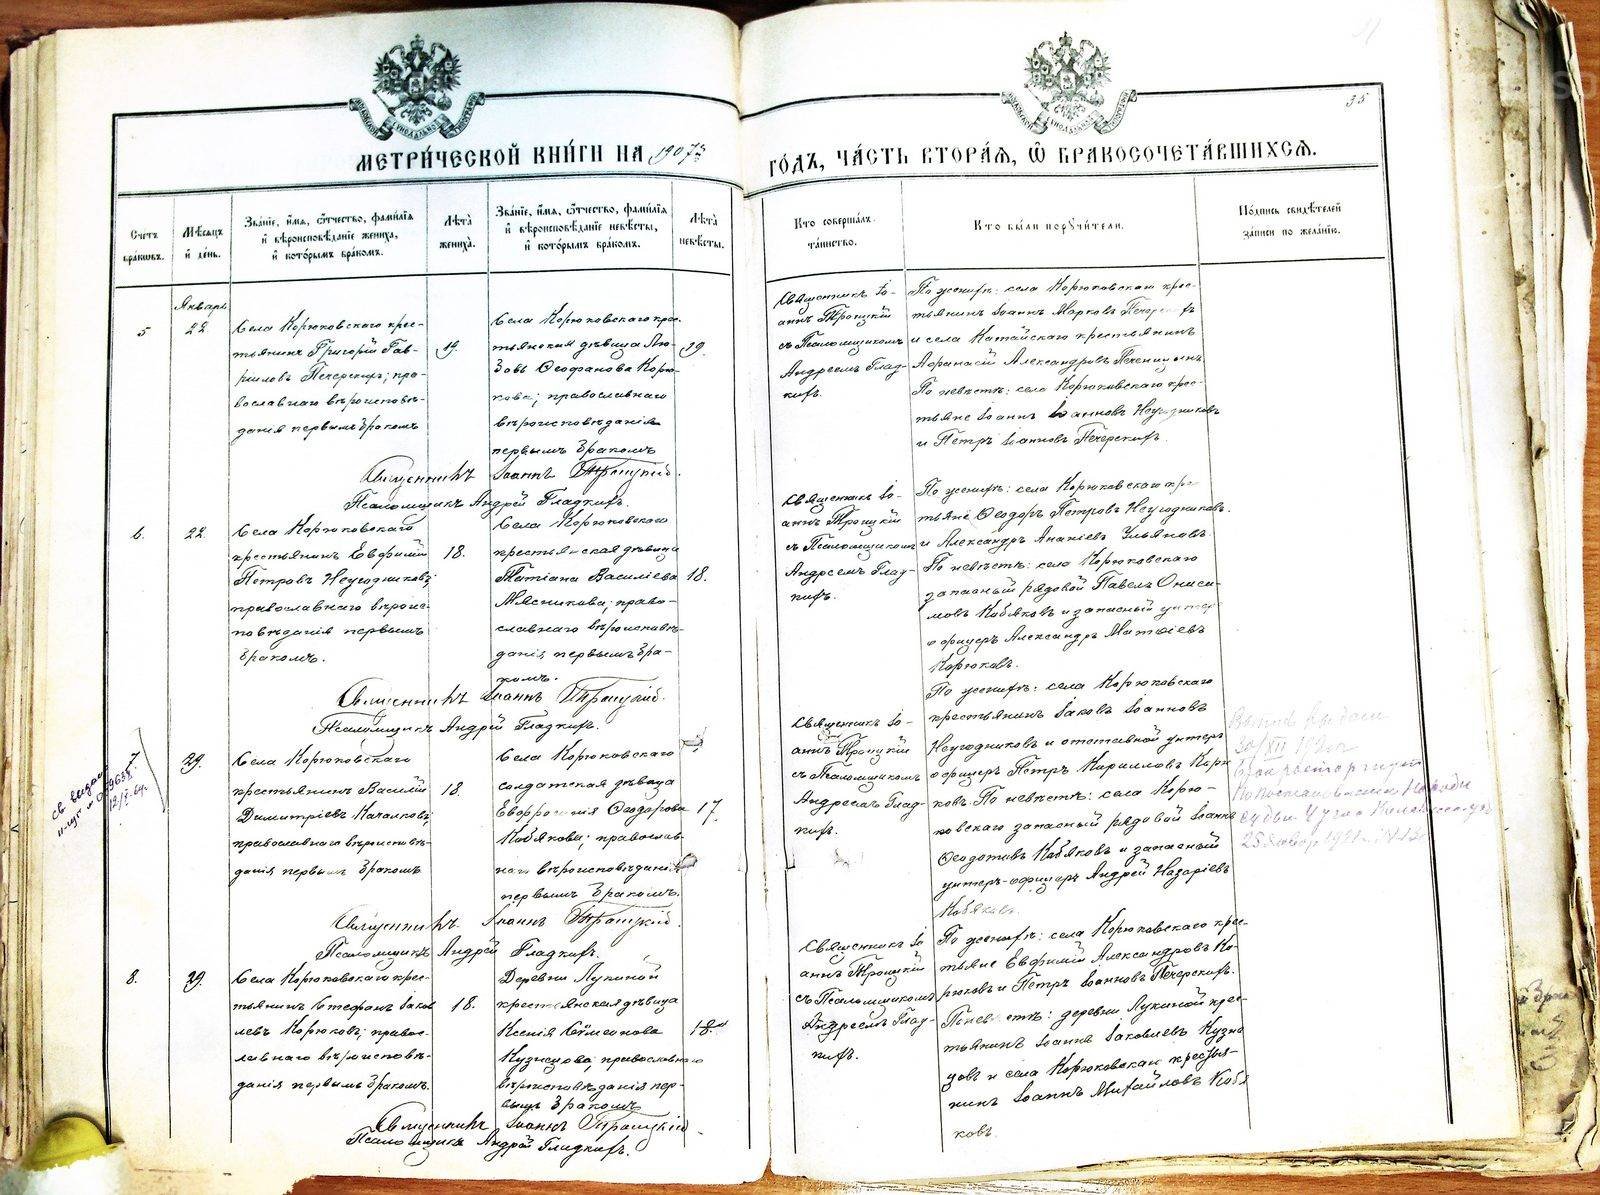 35
МЕТРИ́ЧЕСКОЙ КНИ́ГИ НА 1907й
ГО́ДЪ, ЧА́СТЬ ВТОРА́Я, Ѽ БРАКОСОЧЕТА́ВШИХСЯ.
Счетъ браковъ.
Мѣсяцъ и день.
Зва́нїе, и́мя, ѻ́тчество, фами́лїя
и вѣроисповѣ́данїе жениха̀,
и кото́рымъ бра́комъ.
Лѣта̀ жениха̀.
Зва́нїе, и́мя, ѻ́тчество, фами́лїя
и вѣроисповѣ́данїе невѣ́сты,
и кото́рымъ бра́комъ.
Лѣта̀ невѣ́сты.
Кто соверша́лъ
та́инство.
Кто бы́ли порꙋчи́тели.
По́дпись свидѣ́телей
за́писи по жела́нїю.
Январь
5
22
Села Корюковскаго крес-
тьянинъ Григорій Гав-
риловъ Печерскихъ; пра-
вославнаго вѣроисповѣ-
данія первымъ бракомъ
19.
Села Корюковскаго крес-
тьянская дѣвица Лю-
бовь Ѳеофанова Корю-
кова; православнаго
вѣроисповѣданія
первымъ бракомъ
19.
Священникъ Іо-
аннъ Троицкій
съ Псаломщикомъ
Андреемъ Глад-
кихъ.
По женихѣ: села Корюковскаго крес-
тьянинъ Іоаннъ Марковъ Печерскихъ
и села Катайскаго крестьянинъ
Аѳанасій Александровъ
По невѣстѣ: села Корюковскаго крес-
тьяне Іоаннъ Іоанновъ Неугодниковъ
и Петръ Іоанновъ Печерскихъ.
Священникъ Іоаннъ Троицкій.
Псаломщикъ Андрей Гладкихъ.
6.
22.
Села Корюковскаго
крестьянинъ Евѳимій
Петровъ Неугодниковъ;
православнаго вѣроис-
повѣданія первымъ
бракомъ.
18.
Села Корюковскаго
крестьянская дѣвица
Татіана Василіева
Мясникова; право-
славнаго вѣроисповѣ-
данія первымъ бра-
комъ.
18.
Священникъ Іо-
аннъ Троицкій
съ Псаломщикомъ
Андреемъ Глад-
кихъ.
По женихѣ: села Корюковскаго крес-
тьяне Ѳеодоръ Петровъ Неугодниковъ
и Александръ Ананіевъ Ульяновъ.
По невѣстѣ: села Корюковскаго
запасный рядовой Павелъ Ониси-
мовъ Кобяковъ и запасный унтеръ
офицеръ Александръ Матѳіевъ
Корюковъ.
Священникъ Іоаннъ Троицкій.
Псаломщикъ Андрей Гладкихъ.
7
29.
Села Корюковскаго
крестьянинъ Василій
Димитріевъ Качалковъ;
православнаго вѣроисповѣ-
данія первымъ бракомъ
18.
Села Корюковскаго
солдатская дѣвица
Евфросинія Ѳеодорова
Кобякова; православ-
наго вѣроисповѣданія
первымъ бракомъ.
17.
Священникъ Іо-
аннъ Троицкій
съ Псаломщикомъ
Андреемъ Глад-
кихъ.
По женихѣ: села Корюковскаго
крестьянинъ Іаковъ Іоанновъ
Неугодниковъ и отставной унтеръ
офицеръ Петръ Кирилловъ Корю
ковъ. По невѣстѣ: села Корю-
ковскаго запасный рядовой Іоаннъ
Ѳеодотовъ Кобяковъ и запасный
унтеръ-офицеръ Андрей Назаріевъ
Кобяковъ.
Священникъ Іоаннъ Троицкій.
Псаломщикъ Андрей Гладкихъ.
8.
29.
Села Корюковскаго крес-
тьянинъ Стефанъ Іаков
левъ Корюковъ; правос-
лавнаго вѣроисповѣ-
данія первымъ бракомъ.
18.
Деревни Лукиной
крестьянская дѣвица
Ксенія Сѵмеонова
Кузнецова; православнаго
вѣроисповѣданія пер-
вымъ бракомъ
18.
Священникъ Іо
аннъ Троицкій
съ Псаломщикомъ
Андреемъ Глад-
кихъ.
По женихѣ: села Корюковскаго крес-
тьяне Евѳимій Александровъ Ко-
рюковъ и Петръ Іоанновъ Печерскихъ.
По невѣстѣ: деревни Лукиной крес-
тьянинъ Іоаннъ Іаковлевъ Кузне
цовъ и села Корюковскаго крестья-
нинъ Іоаннъ Михайловъ Кобя
ковъ.
Священникъ Іоаннъ Троицкій
Псаломщикъ Андрей Гладкихъ.